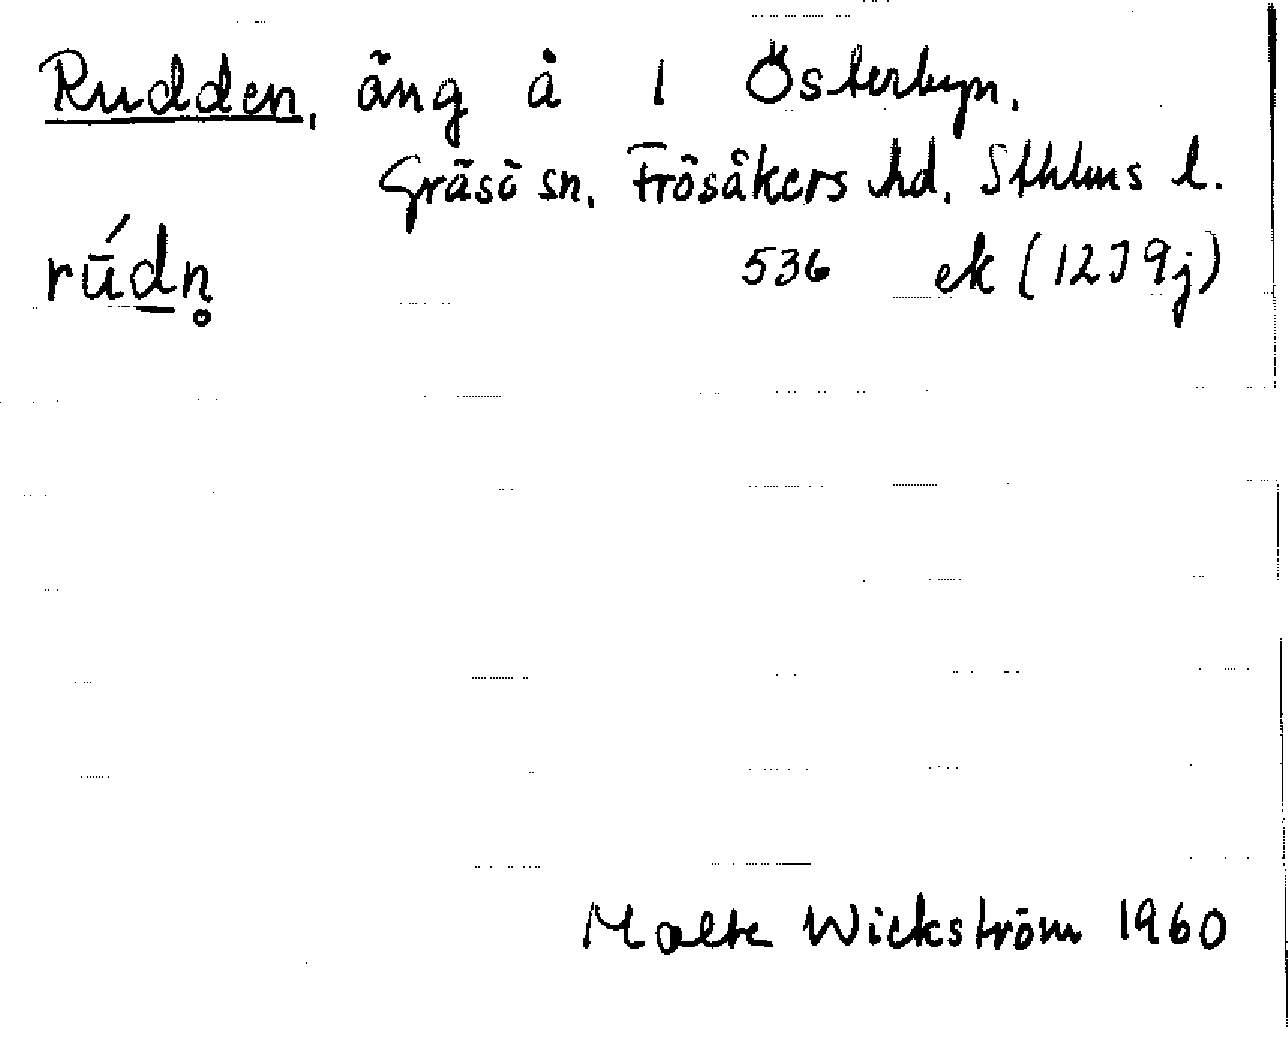 Rudden, äng å 1 Österbyn.
Gräsö sn. Frösåkers hd. Sthlms l.
rū́dn̥ 536 ek (12J9j)
Malte Wickström 1960